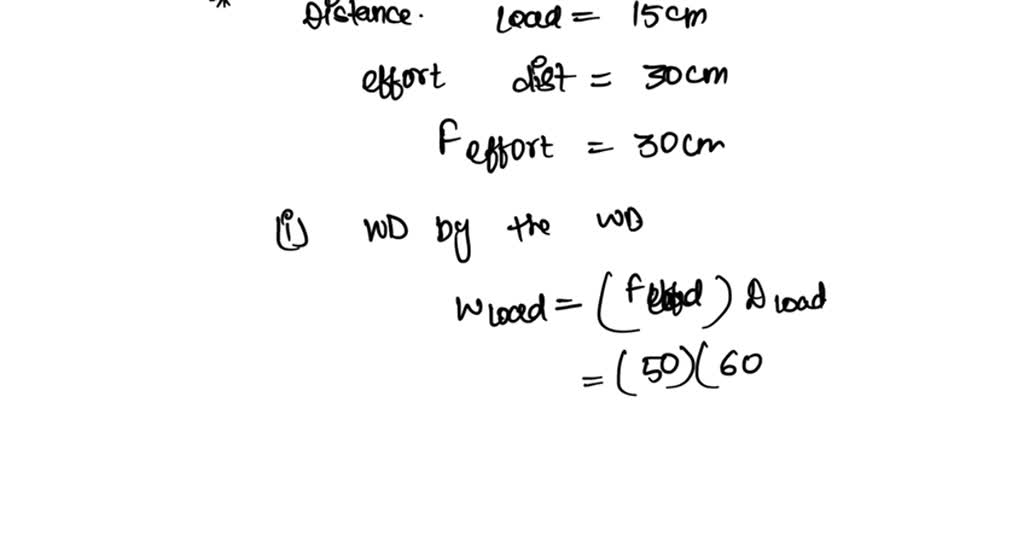 Distance. Load = 15cm
effort dist = 30cm
F effort = 30cm
(i) WD by the WD
W Load = ( F ) D Load
= (50)(60